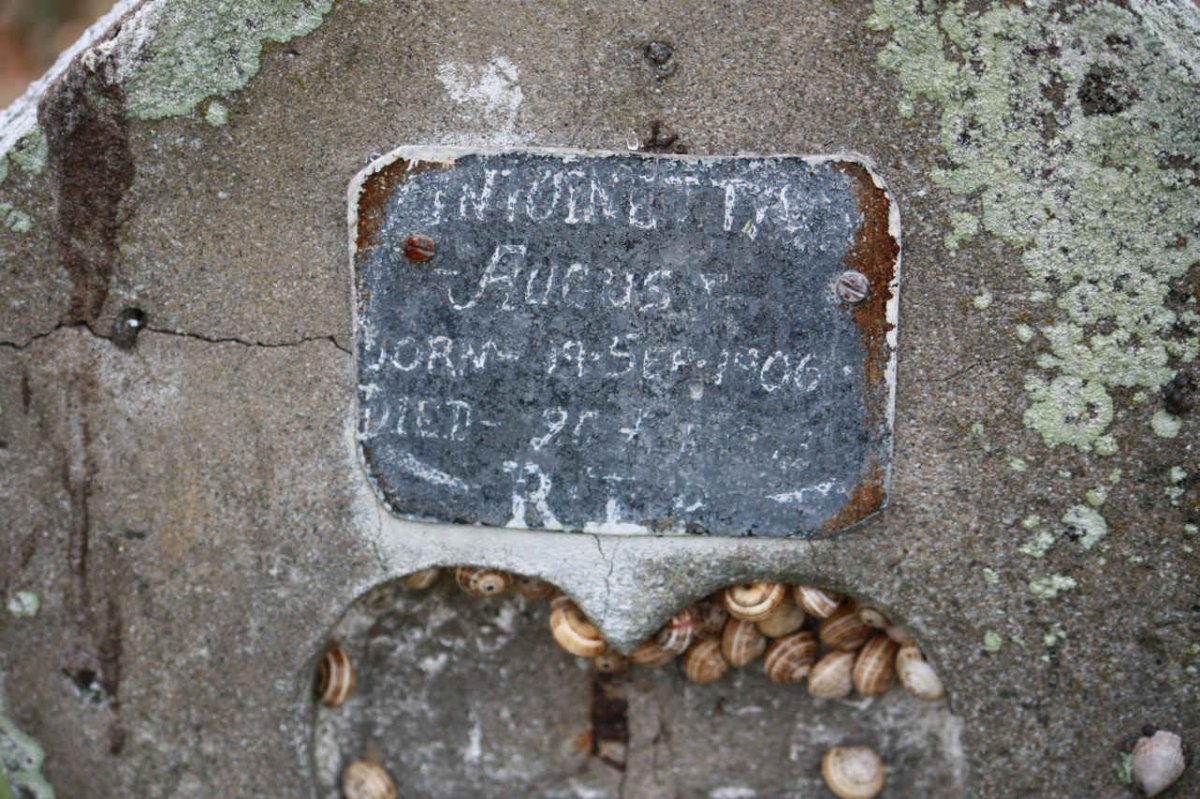 ANTOINETTA
- AUGUST
BORN - 19 · SEP · 1906
DIED -
R I P